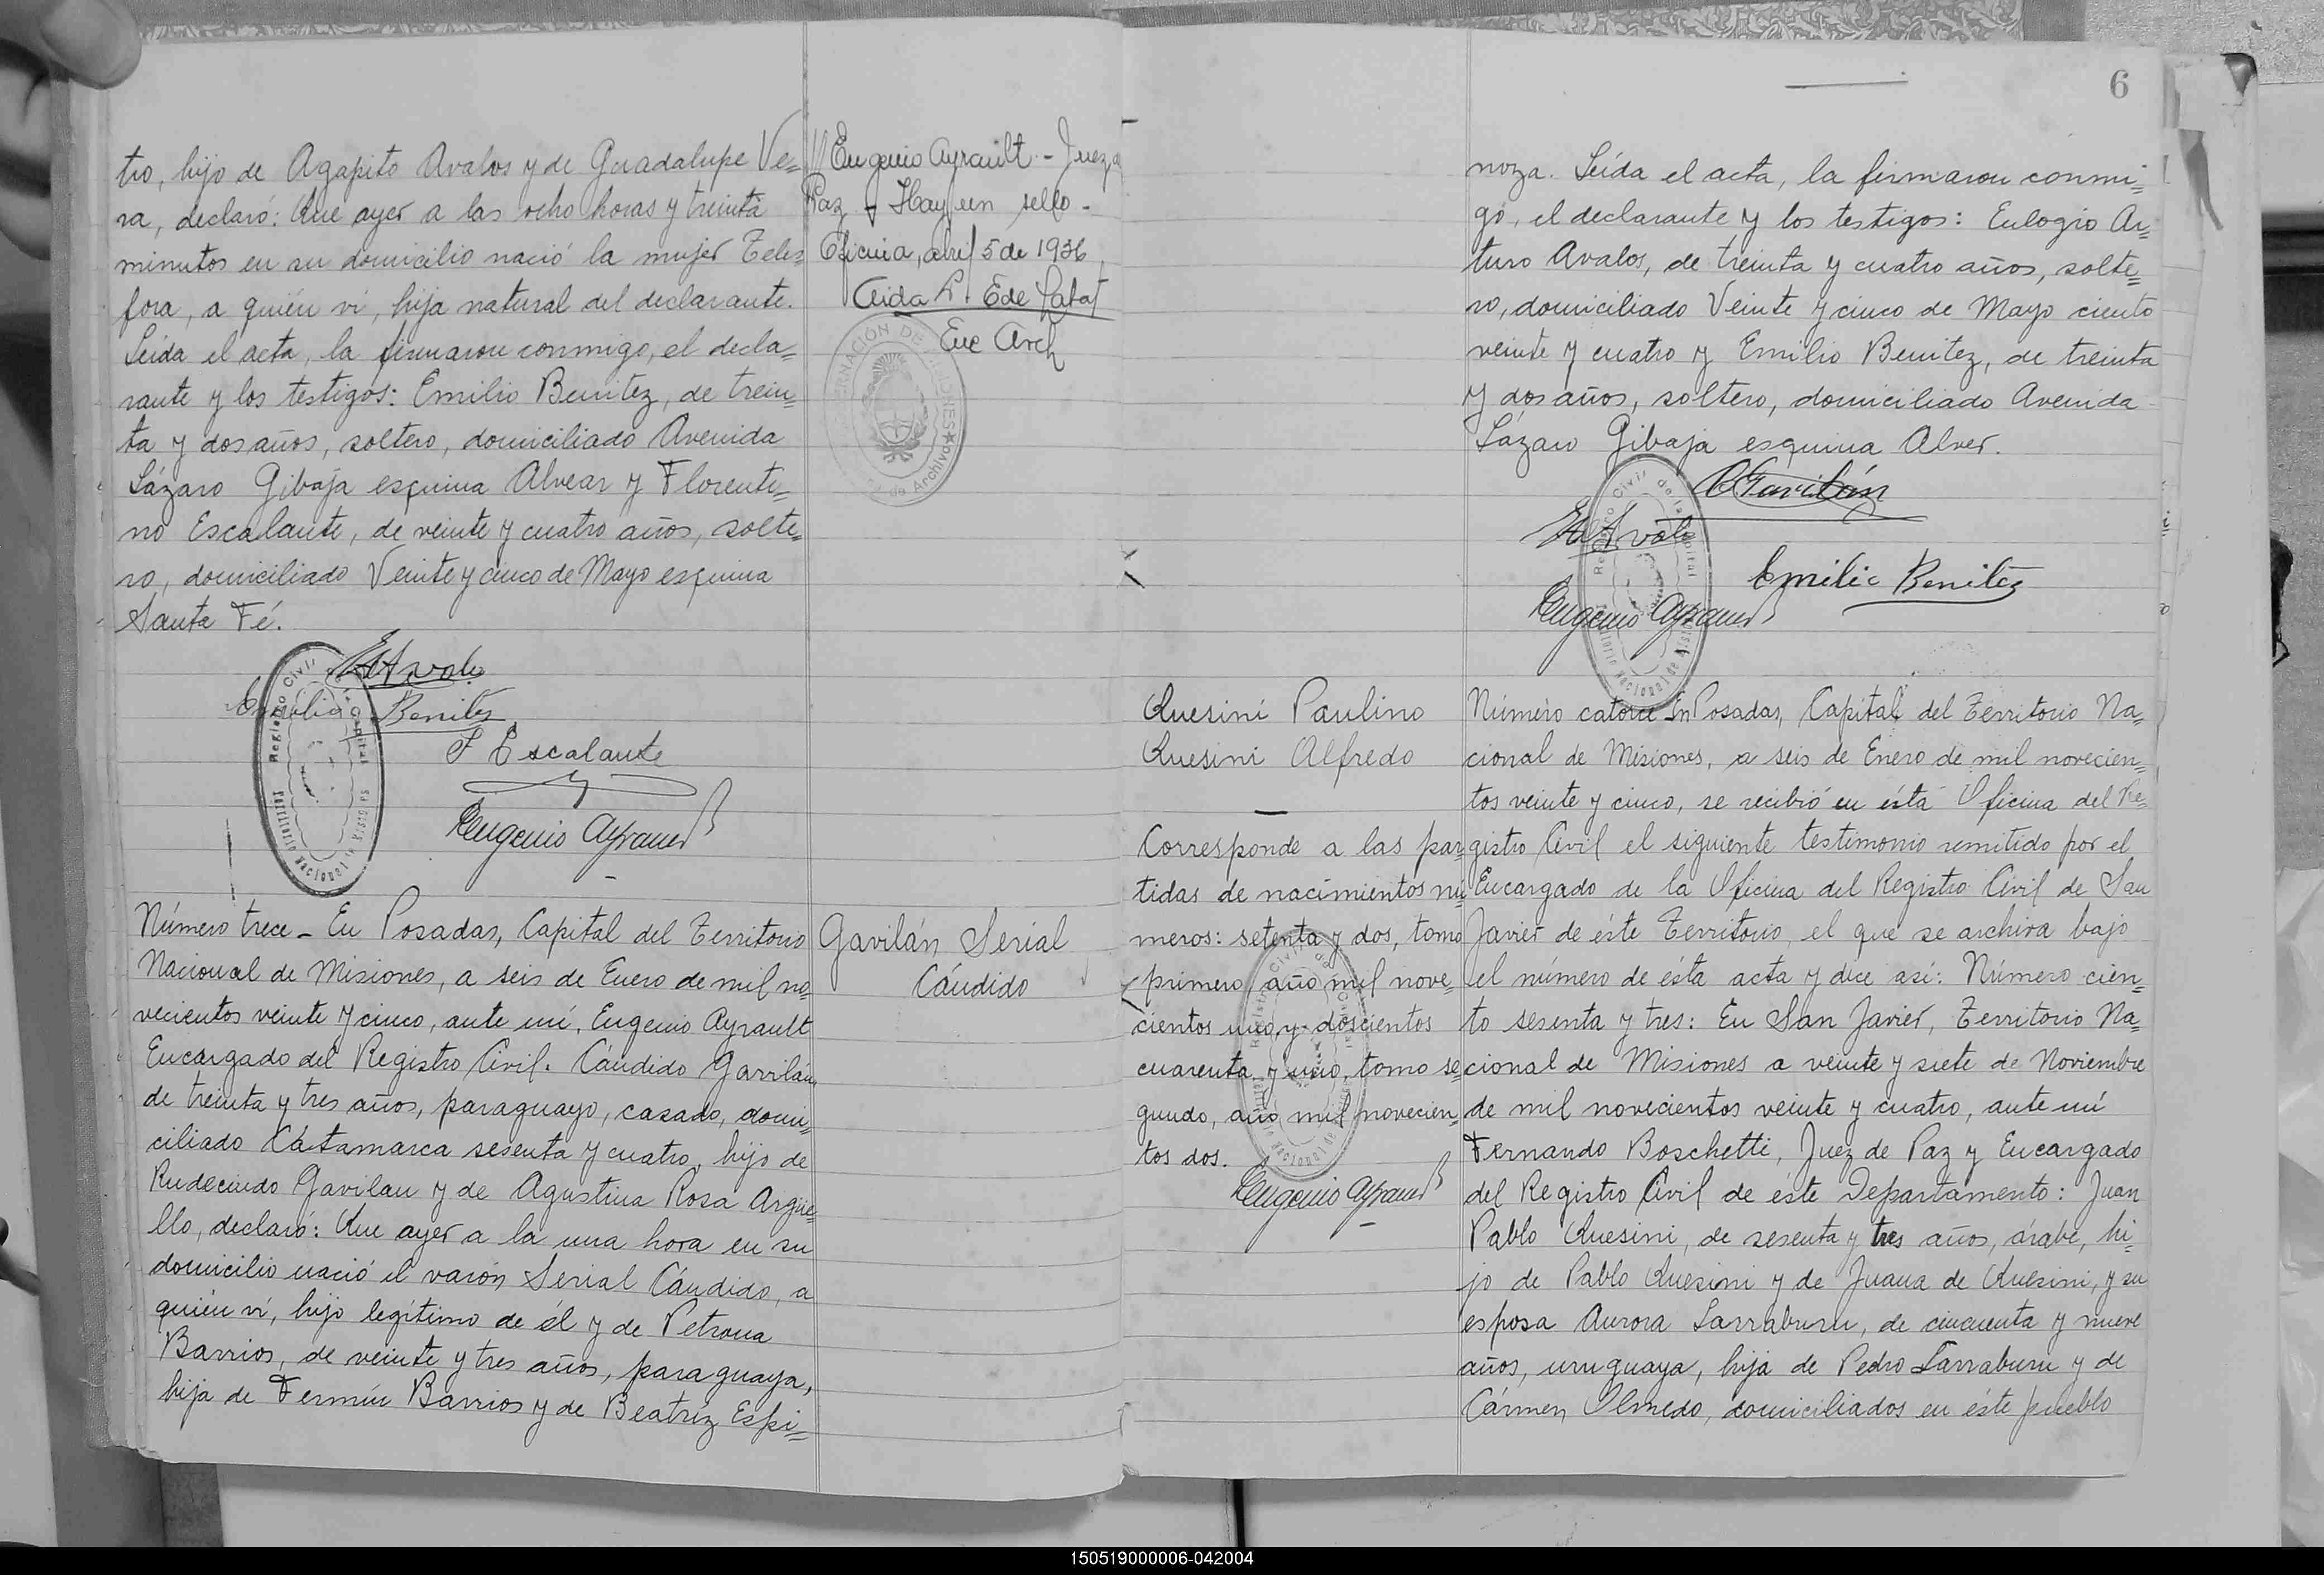 tro, hijo de Agapito Avalos y de Guadalupe Ve=
ra, declaró: Que ayer a las ocho horas y treinta
minutos en su domicilio nació la mujer Teles=
fora, a quién ví, hija natural del declarante.
Leída el acta, la firmaron conmigo, el decla=
rante y los testigos: Emilio Benitez, de trein=
ta y dos años, soltero, domiciliado Avenida
Lázaro Gibaja esquina Alvear y Florenti=
no Escalante, de veinte y cuatro años, solte=
ro, domiciliado Veinte y cinco de Mayo esquina
Santa Fé.
Emilio Benitez
F Escalante
Eugenio Ayrault
Eugenio Ayrault - Juez
Paz - Hay un sello -
Oficina, abril 5 de 1936
Enc Arch
Número trece - En Posadas, Capital del Territorio
Nacional de Misiones, a seis de Enero de mil no=
vecientos veinte y cinco, ante mí, Eugenio Ayrault
Encargado del Registro Civil. Cándido Gavilán,
de treinta y tres años, paraguayo, casado, domi=
ciliado Catamarca sesenta y cuatro, hijo de
Rudecindo Gavilan y de Agustina Rosa Argüe=
llo, declaró: Que ayer a la una hora en su
domicilio nació el varón Serial Cándido, a
quién ví, hijo legítimo de él y de Petrona
Barrios, de veinte y tres años, paraguaya,
hija de Fermín Barrios y de Beatríz Espi=
Gavilán Serial
Cándido
6
noza. Leída el acta, la firmaron conmi=
go, el declarante y los testigos: Eulogio Ar=
turo Avalos, de treinta y cuatro años, solte=
ro, domiciliado Veinte y cinco de Mayo ciento
veinte y cuatro y Emilio Benitez, de treinta
y dos años, soltero, domiciliado Avenida
Lázaro Gibaja esquina Alver.
C Gavilán
Emilio Benitez
Eugenio Ayrault
Quesini Paulino
Quesini Alfredo
Corresponde a las par=
tidas de nacimientos nú=
meros: setenta y dos, tomo
primero, año mil nove=
cientos uno, y doscientos
cuarenta y uno, tomo se=
gundo, año mil novecien
tos dos.
Eugenio Ayrault
Número catorce En Posadas, Capital del Territorio Na=
cional de Misiones, a seis de Enero de mil novecien=
tos veinte y cinco, se recibió en ésta Oficina del Re=
gistro Civil el siguiente testimonio remitido por el
Encargado de la Oficina del Registro Civil de San
Javier de éste Territorio, el que se archiva bajo
el número de ésta acta y dice así: Número cien=
to sesenta y tres: En San Javier, Territorio Na=
cional de Misiones a veinte y siete de Noviembre
de mil novecientos veinte y cuatro, ante mí
Fernando Boschetti, Juez de Paz y Encargado
del Registro Civil de éste Departamento: Juan
Pablo Quesini, de sesenta y tres años, árabe, hi=
jo de Pablo Quesini y de Juana de Quesini, y su
esposa Aurora Larraburu, de cincuenta y nueve
años, uruguaya, hija de Pedro Larraburu y de
Cármen Olmedo, domiciliados en éste pueblo
150519000006-042004